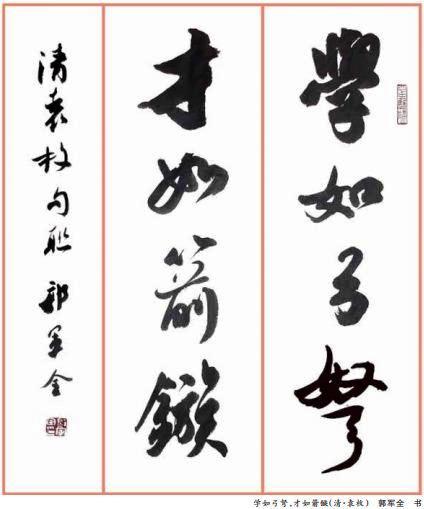 學如弓弩
才如箭鏃
清袁枚句联 郭军全
学如弓弩,才如箭镞(清·袁枚) 郭军全 书